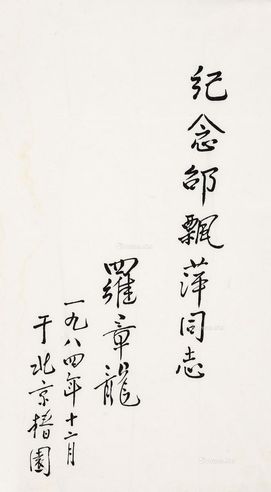 纪念邵飘萍同志
羅章龍
一九八四年十二月
于北京椿園